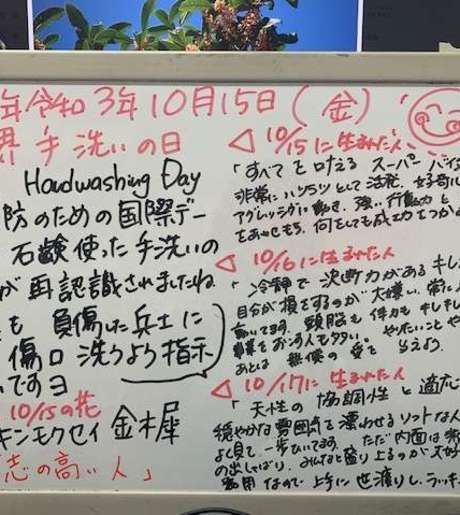 年令和3年10月15日(金)
界手洗いの日
Handwashing Day
防のための国際デー
石鹸使った手洗いの
が再認識されましたね
も 負傷した兵士に
傷口洗うよう指示
ですヨ
10/15の花
キンモクセイ 金木犀
志の高い人」
◁ 10/15に生まれた人
「すべてを叶える スーパーバイ
非常にハツラツとして活発、好奇心
アグレッシブに動き、強い行動力と
をあわせもち、何をしても成功をつかめ
◁ 10/16に生まれた人
「冷静で 決断力がある キレ
自分が損をするのが大嫌い、常に
働いてます。頭脳も体力もキレキレ
事業をおこす人も多い。やりたいことや
あとは 無償の愛を 与えよう。
◁ 10/17に生まれた人
「天性の 協調性と適応
穏やかな雰囲気を漂わせるソフトな人
よく見て一歩ひいてます。ただ内面は
の出しゃばり、みんなと盛り上るのが大好
器用なので上手に世渡りし、ラッキー